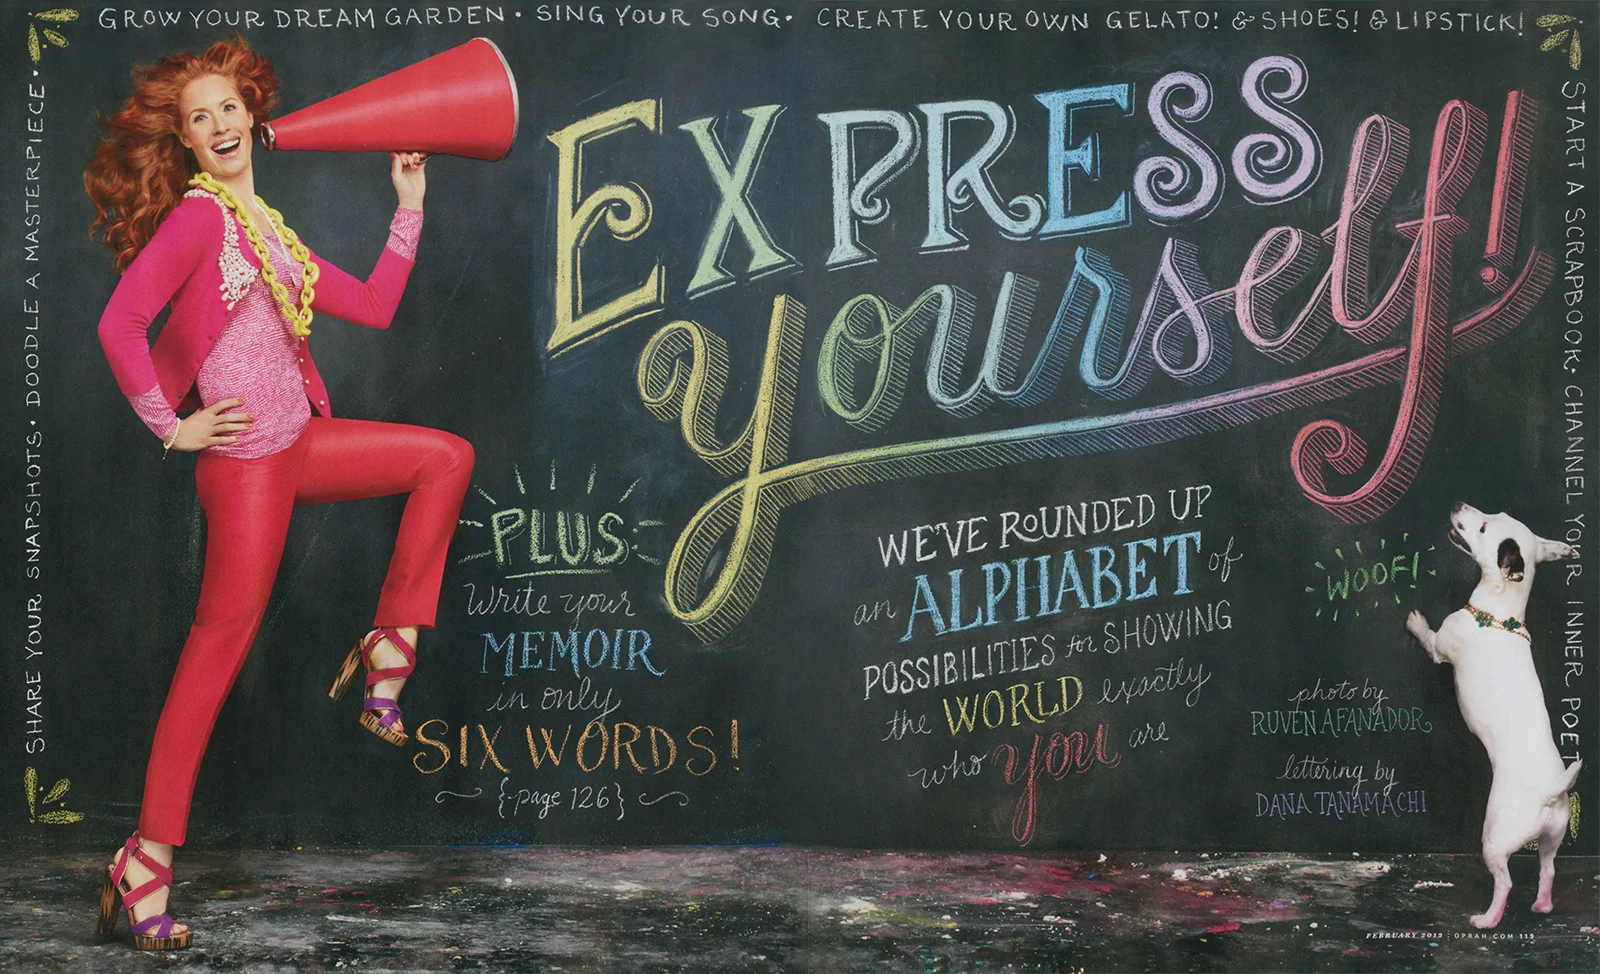 GROW YOUR DREAM GARDEN • SING YOUR SONG • CREATE YOUR OWN GELATO! & SHOES! & LIPSTICK!
SHARE YOUR SNAPSHOTS • DOODLE A MASTERPIECE •
EXPRESS
yourself!
PLUS
Write your
MEMOIR
in only
SIX WORDS!
{page 126}
WE'VE ROUNDED UP
an ALPHABET of
POSSIBILITIES for SHOWING
the WORLD exactly
who you are
WOOF!
photo by
RUVEN AFANADOR
lettering by
DANA TANAMACHI
START A SCRAPBOOK • CHANNEL YOUR INNER POET
FEBRUARY 2012 | OPRAH.COM 119